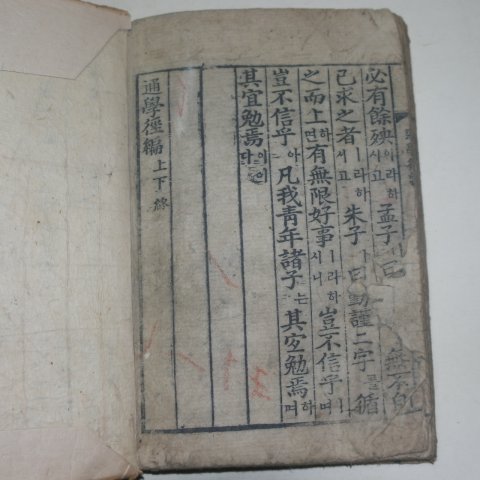 必有餘殃이라하시고 孟子ㅣ曰
己求之者ㅣ라하시고 朱子ㅣ曰勤謹二字를循
之而上하면有無限好事ㅣ라하시니豈不信乎며
豈不信乎아凡我靑年諸子는其宜勉焉하며
其宜勉焉이다
通學徑編上下終